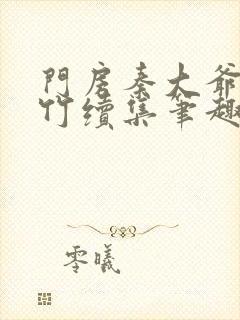 門房秦大爺
竹續集筆趣
零曦